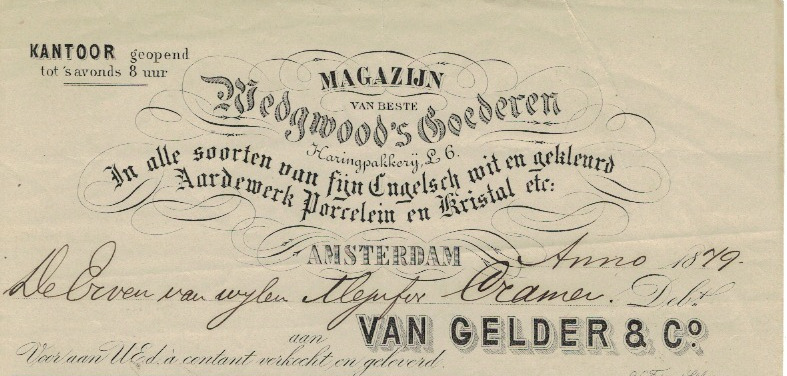 KANTOOR geopend
tot 's avonds 8 uur
MAGAZIJN
VAN BESTE
Wedgwood's Goederen
Haringpakkerij, L 6.
In alle soorten van fijn Engelsch wit en gekleurd
Aardewerk Porcelein en Kristal etc:
AMSTERDAM
Anno 1879.
De Erven van wylen Mejufvr Cramer. Debt
aan VAN GELDER & Co.
Voor aan UEd. à contant verkocht en geleverd.